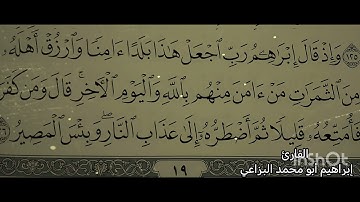 ١٢٥ وَإِذۡ قَالَ إِبۡرَٰهِـۧمُ رَبِّ ٱجۡعَلۡ هَٰذَا بَلَدًا ءَامِنٗا وَٱرۡزُقۡ أَهۡلَهُۥ
مِنَ ٱلثَّمَرَٰتِ مَنۡ ءَامَنَ مِنۡهُم بِٱللَّهِ وَٱلۡيَوۡمِ ٱلۡأٓخِرِۚ قَالَ وَمَن كَفَرَ
فَأُمَتِّعُهُۥ قَلِيلٗا ثُمَّ أَضۡطَرُّهُۥٓ إِلَىٰ عَذَابِ ٱلنَّارِۖ وَبِئۡسَ ٱلۡمَصِيرُ ١٢٦
القارئ
InShot
إبراهيم أبو محمد البزاعي
١٩